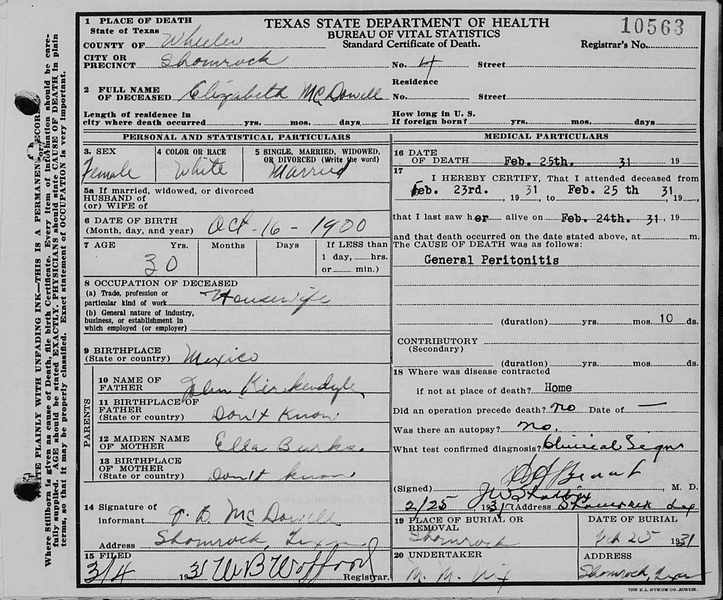 1 PLACE OF DEATH
State of Texas
COUNTY OF Wheeler
CITY OR
PRECINCT Shamrock
TEXAS STATE DEPARTMENT OF HEALTH
BUREAU OF VITAL STATISTICS
Standard Certificate of Death.
10563
Registrar's No.
No. 4 Street
Residence
2 FULL NAME
OF DECEASED Elizabeth McDowell
No. Street
Length of residence in
city where death occurred yrs. mos. days.
How long in U. S.
If foreign born? yrs. mos. days
PERSONAL AND STATISTICAL PARTICULARS
3. SEX
Female
4 COLOR OR RACE
White
5 SINGLE, MARRIED, WIDOWED,
OR DIVORCED (Write the word)
Married
5a If married, widowed, or divorced
HUSBAND OF
(or) WIFE OF
6 DATE OF BIRTH
(Month, day, and year) Oct-16-1900
7 AGE Yrs. Months Days If LESS than
1 day, hrs.
or min.)
30
8 OCCUPATION OF DECEASED
(a) Trade, profession or
particular kind of work Housewife
(b) General nature of industry,
business, or establishment in
which employed (or employer)
9 BIRTHPLACE
(State or country) Mexico
PARENTS
10 NAME OF
FATHER John
11 BIRTHPLACE OF
FATHER
(State or country) Don't Know
12 MAIDEN NAME
OF MOTHER Ella Burks
13 BIRTHPLACE OF
MOTHER
(State or country) Don't know
14 Signature of
informant McDowell
Address Shamrock, Texas
15 FILED
3/4 1931 WB Wofford
Registrar.
MEDICAL PARTICULARS
16 DATE
OF DEATH Feb. 25th. 31 19
17
I HEREBY CERTIFY, That I attended deceased from
Feb. 23rd. 31 19 to Feb 25 th 31 19
that I last saw her alive on Feb. 24th. 31, 19
and that death occurred on the date stated above, at m.
The CAUSE OF DEATH was as follows:
General Peritonitis
(duration) yrs. mos. 10 ds.
CONTRIBUTORY
(Secondary)
(duration) yrs. mos. ds.
18 Where was disease contracted
if not at place of death? Home
Did an operation precede death? no Date of —
Was there an autopsy? no.
What test confirmed diagnosis? Clinical Signs
(Signed) M. D.
2/25 1931 Address Shamrock Tex
19 PLACE OF BURIAL OR
REMOVAL
Shamrock
DATE OF BURIAL
Feb 25 1931
20 UNDERTAKER
M. M. Nix
ADDRESS
Shamrock, Texas
WRITE PLAINLY WITH UNFADING INK—THIS IS A PERMANENT RECORD
Where Stillborn is given as cause of Death, file birth Certificate. Every item of information should be care-
fully supplied. AGE should be stated EXACTLY. PHYSICIANS should state CAUSE OF DEATH in plain
terms, so that it may be properly classified. Exact statement of OCCUPATION is very important.